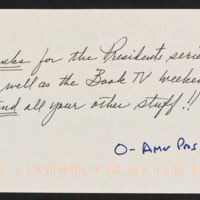 for the Presidents series
well as the Book TV weeken
and all your other stuff!!
O-